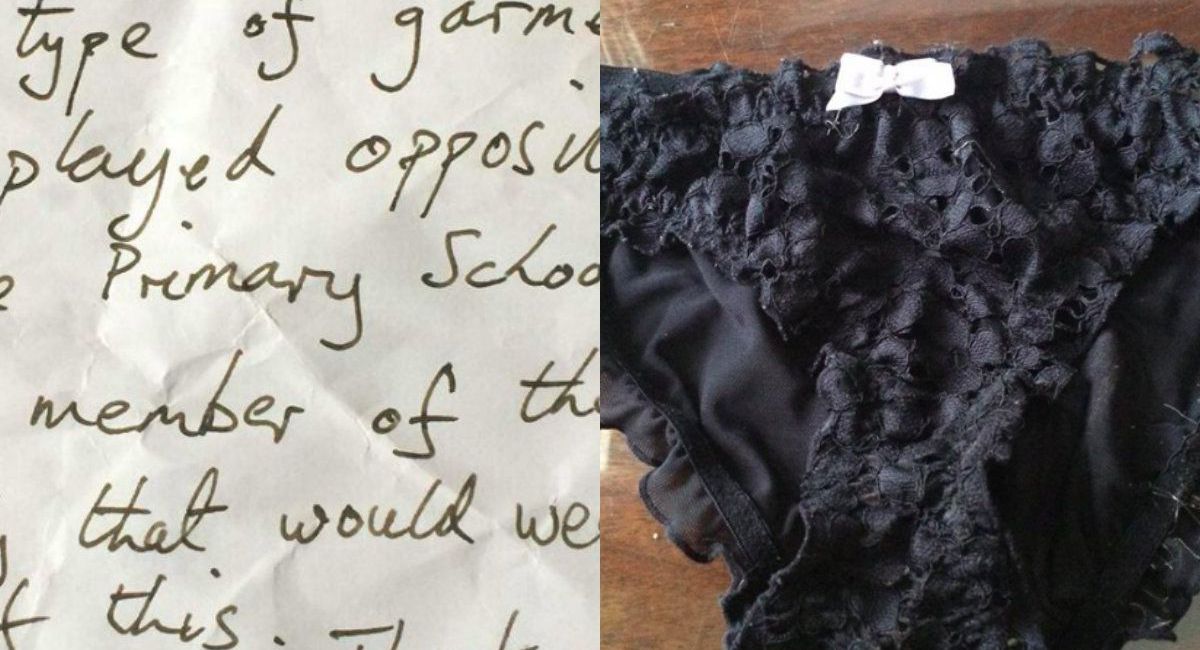 type of garme
played opposi
e Primary Schoo
member of th
that would we
f this.